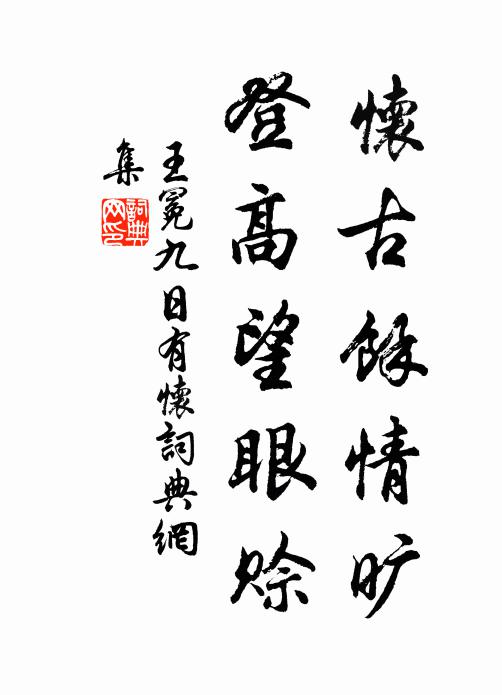 懷古餘情曠
登高望眼賒
王冕九日有懷詞典網
集
詞典
网印